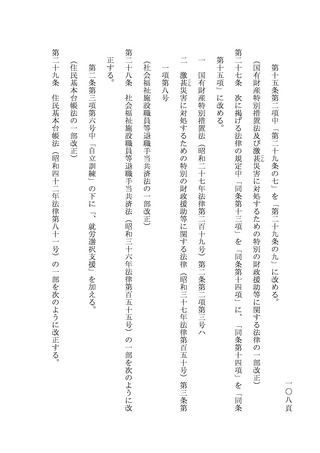 一〇八頁
第十五条第二項中「第二十九条の七」を「第二十九条の九」に改める。
（国有財産特別措置法及び激甚災害に対処するための特別の財政援助等に関する法律の一部改正）
第二十七条　次に掲げる法律の規定中「同条第十三項」を「同条第十四項」に、「同条第十四項」を「同条
第十五項」に改める。
一　国有財産特別措置法（昭和二十七年法律第二百十九号）第二条第二項第三号ハ
二　激甚災害に対処するための特別の財政援助等に関する法律（昭和三十七年法律第百五十号）第三条第
一項第八号
（社会福祉施設職員等退職手当共済法の一部改正）
第二十八条　社会福祉施設職員等退職手当共済法（昭和三十六年法律第百五十五号）の一部を次のように改
正する。
第二条第三項第六号中「自立訓練」の下に「、就労選択支援」を加える。
（住民基本台帳法の一部改正）
第二十九条　住民基本台帳法（昭和四十二年法律第八十一号）の一部を次のように改正する。